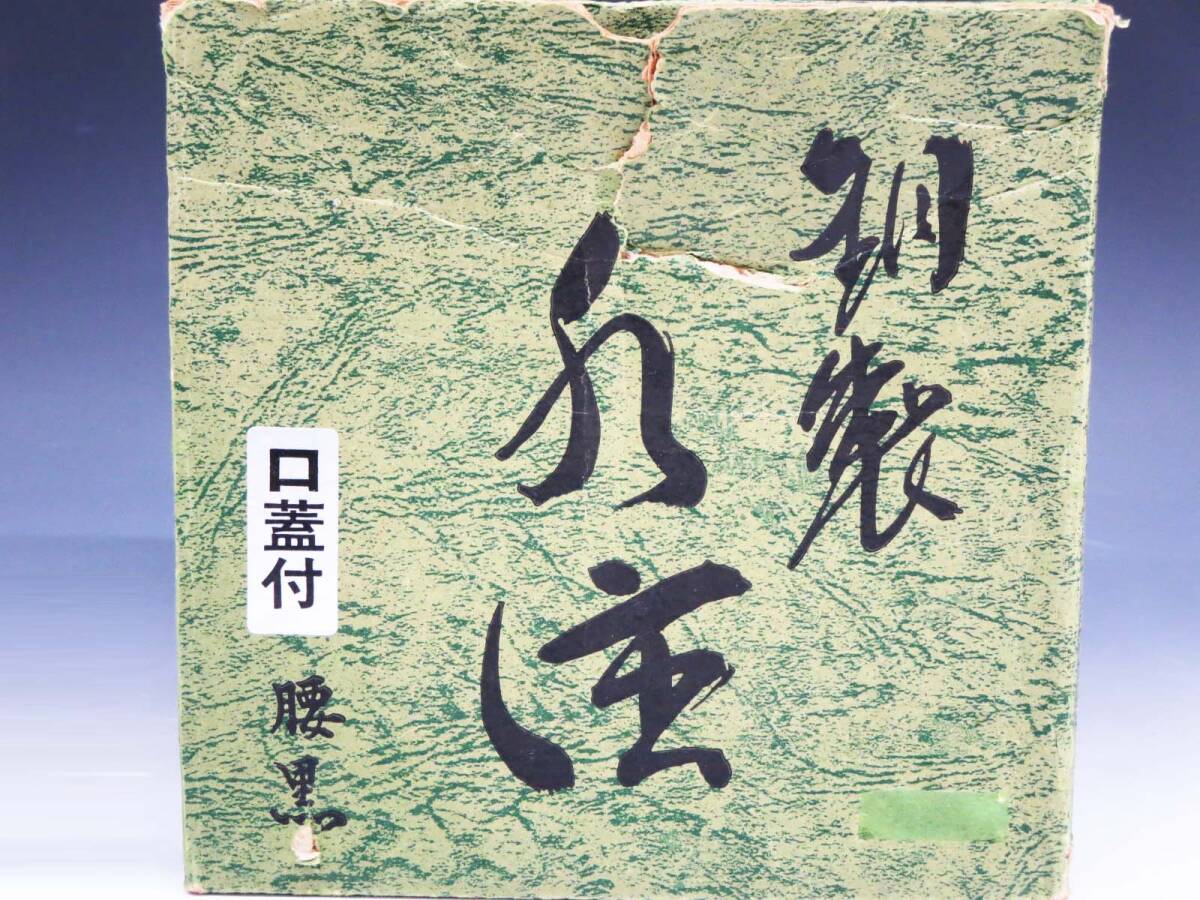 銅製
水注
口蓋付
腰黒